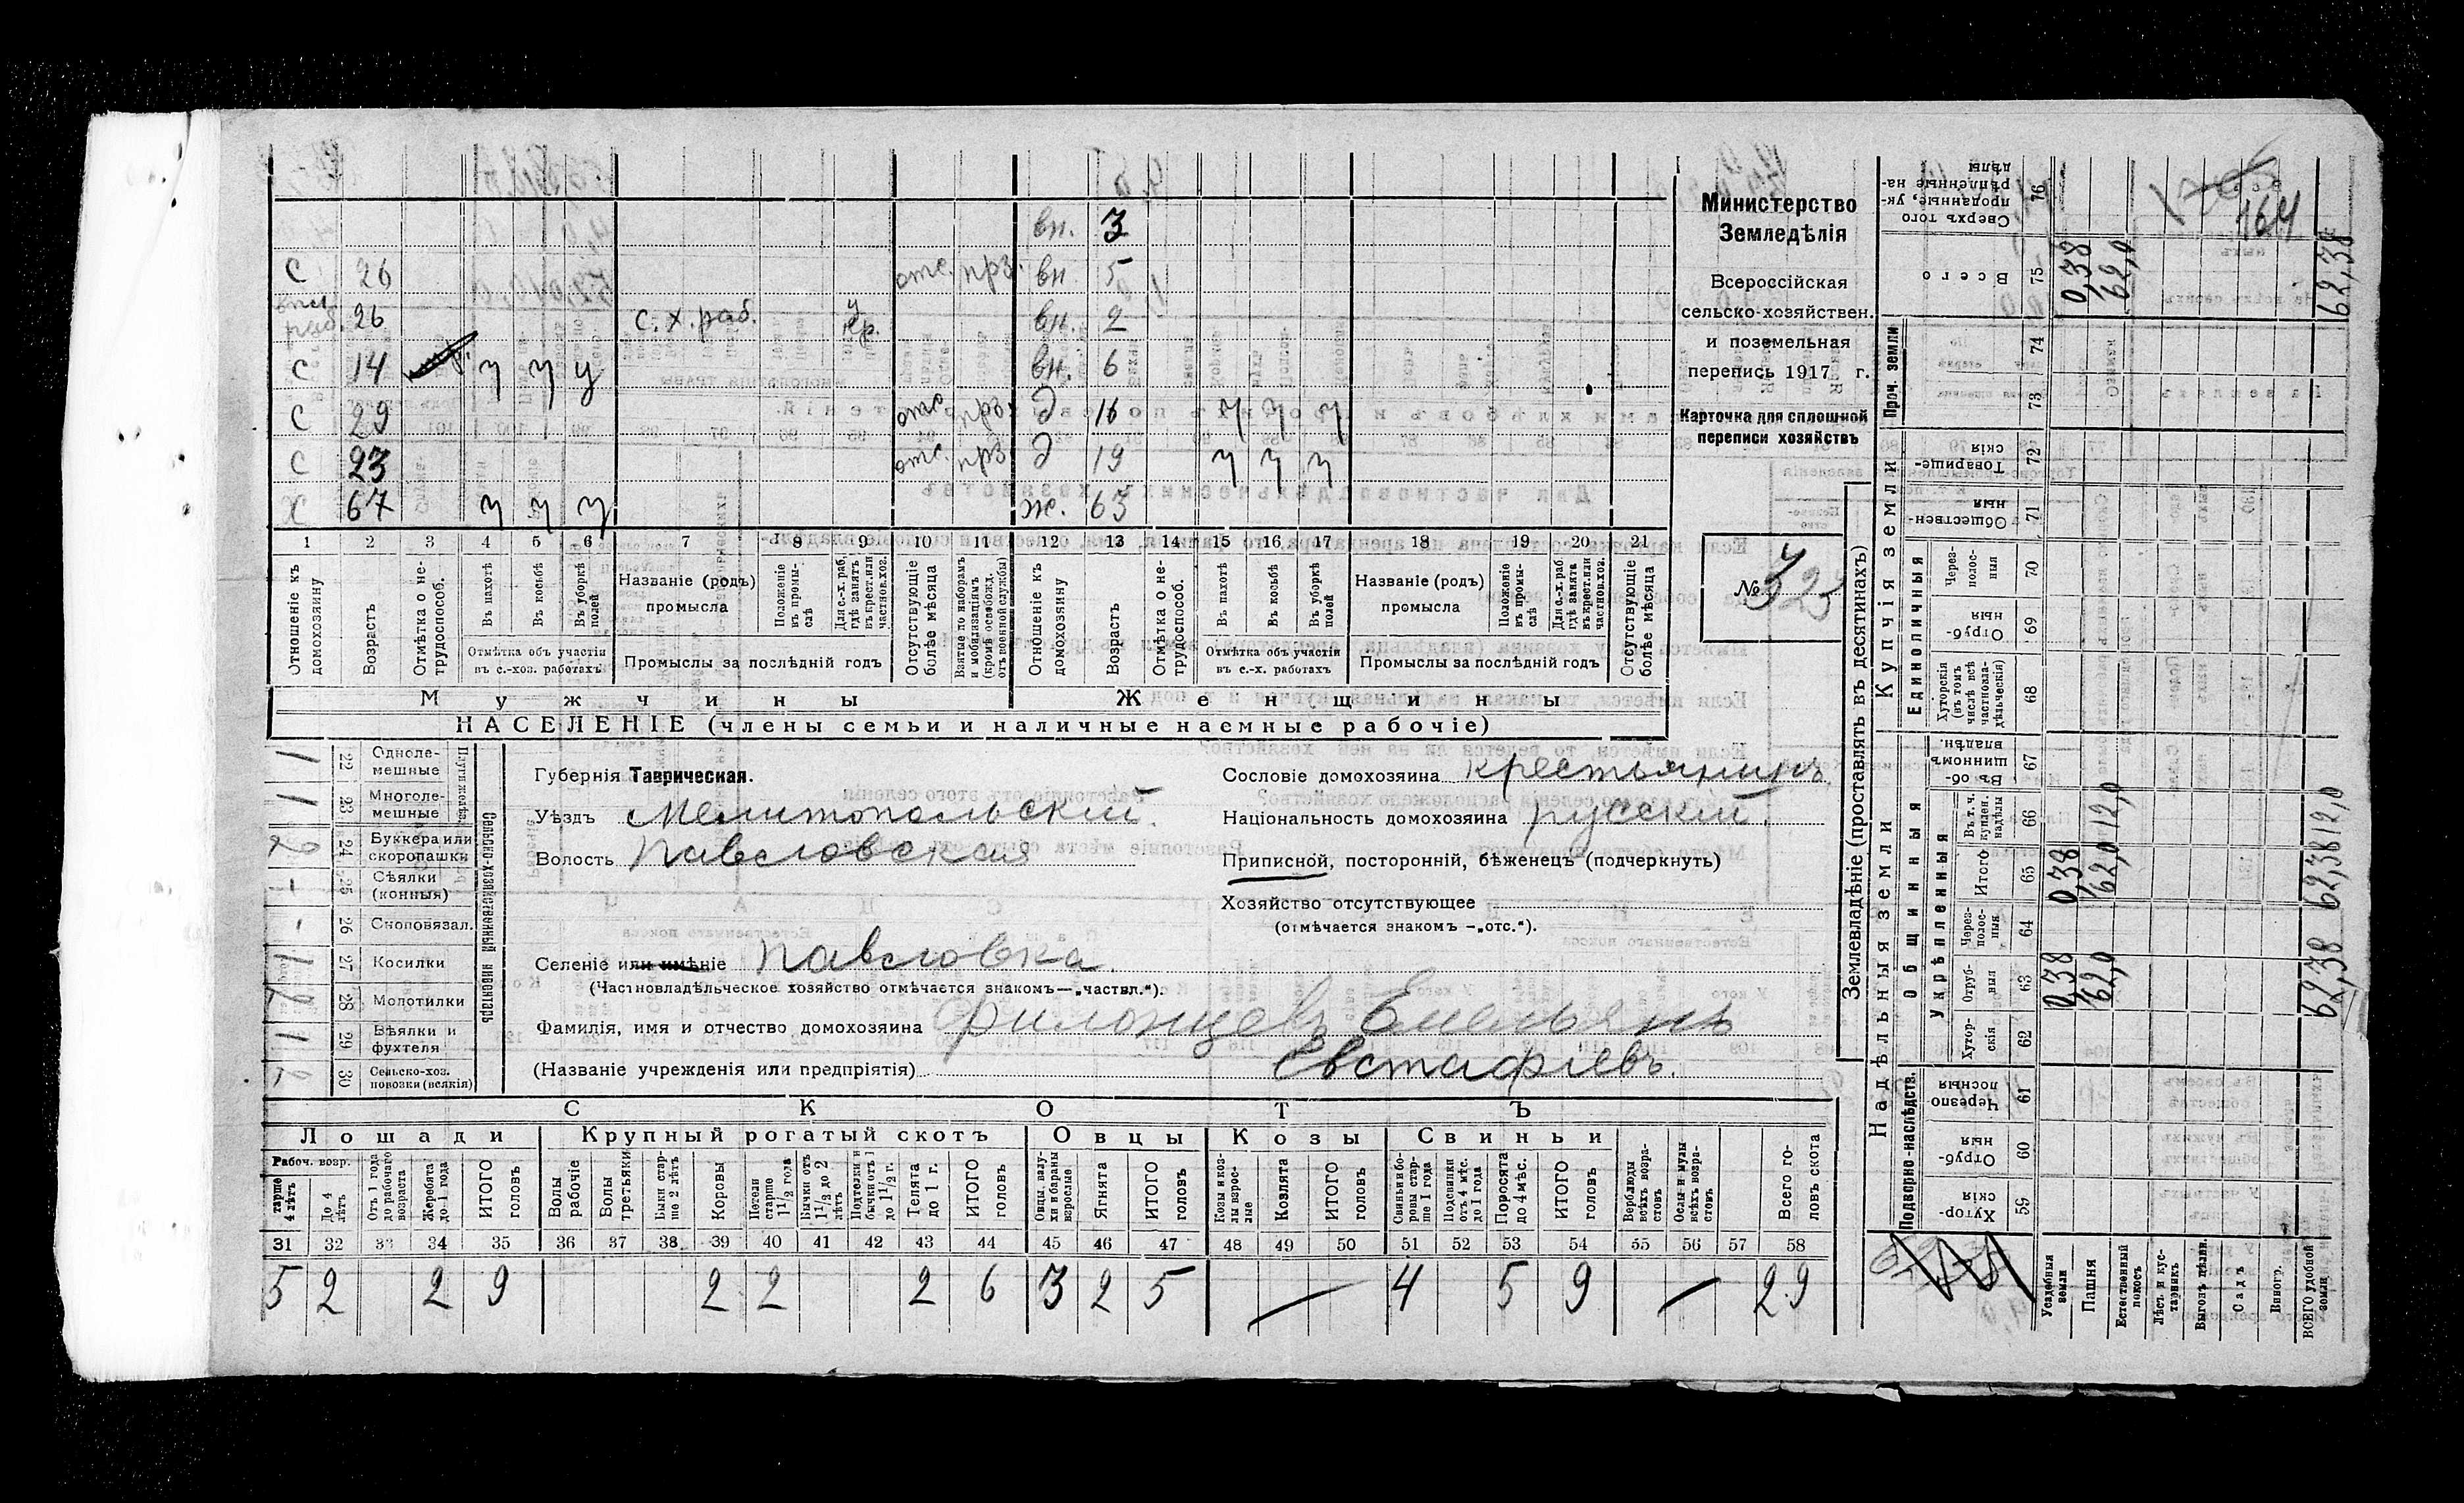 вн. 3
С 26 отс. прз. вн 5
раб. 26 С. х. раб. У кр. вн. 2
С 14 у у у вн. 6
С 29 отс прз. д 16 у у у
С 23 отс. прз д 19 у у у
Х 67 у у у ж. 63
1 2 3 4 5 6 7 8 9 10 11 12 13 14 15 16 17 18 19 20 21
Отношеніе къ домохозяину
Возрастъ
Отмѣтка о не-трудоспособ.
Въ пахотѣ
Въ косьбѣ
Въ уборкѣ полей
Отмѣтка объ участіи въ с.-хоз. работахъ
Названіе (родъ) промысла
Положеніе въ промы-слѣ
Для с.-х. раб. гдѣ занятъ въ крест. или частнов. хоз.
Промыслы за послѣдній годъ
Отсутствующіе болѣе мѣсяца
Взятые по наборамъ и мобилизаціямъ (кромѣ освобожд. отъ военной службы)
Отношеніе къ домохозяину
Возрастъ
Отмѣтка о не-трудоспособ.
Въ пахотѣ
Въ косьбѣ
Въ уборкѣ полей
Отмѣтка объ участіи въ с.-х. работахъ
Названіе (родъ) промысла
Положеніе въ промы-слѣ
Для с.-х. раб. гдѣ занята въ крест. или частнов. хоз.
Промыслы за послѣдній годъ
Отсутствующіе болѣе мѣсяца
Мужчины Женщины
НАСЕЛЕНІЕ (члены семьи и наличные наемные рабочіе)
Министерство
Земледѣлія
Всероссійская
сельско-хозяйствен.
и поземельная
перепись 1917 г.
Карточка для сплошной
переписи хозяйствъ
№ 323
Сельско-хозяйственный инвентарь
Плуги желѣз.
Одноле-мешные 22 1
Многоле-мешные 23 1
Буккера или скоропашки 24 2
Сѣялки (конныя) 25 -
Сноповязал. 26 -
Косилки 27 1
Молотилки 28
Вѣялки и фухтеля 29 1
Сельско-хоз. повозки (всякія) 30 2
Губернія Таврическая.
Уѣздъ Мелитопольскій.
Волость Павловская
Селеніе или имѣніе Павловка.
(Частновладѣльческое хозяйство отмѣчается знакомъ—„частвл.“).
Фамилія, имя и отчество домохозяина Филонцевъ Емельянъ
(Названіе учрежденія или предпріятія) Евстафіевъ.
Сословіе домохозяина крестьянинъ
Національность домохозяина русскій.
Приписной, посторонній, бѣженецъ (подчеркнуть)
Хозяйство отсутствующее
(отмѣчается знакомъ -„отс.“).
СКОТЪ
Лошади Крупный рогатый скотъ Овцы Козы Свиньи
Рабоч. возр.
тарше 4 лѣтъ
До 4 лѣтъ
Отъ 1 года до рабочаго возраста
Жеребята до 1 года
ИТОГО головъ
Волы рабочіе
Волы третьяки
Быки стар-ше 2 лѣтъ
Коровы
Нетели старше 1 1/2 года
Бычки отъ 1 1/2 до 2 лѣтъ
Подтелки и бычки отъ 1 до 1 1/2 г.
Телята до 1 г.
ИТОГО головъ
Овцы, валу-хи и бараны взрослые
Ягнята
ИТОГО головъ
Козы и коз-лы взрос-лые
Козлята
ИТОГО головъ
Свиньи и бо-ровы стар-ше 1 года
Подсвинки отъ 4 мѣс. до 1 года
Поросята до 4 мѣс.
ИТОГО головъ
Верблюды всѣхъ возра-стовъ
Ослы и мулы всѣхъ возра-стовъ
Всего го-ловъ скота
31 32 33 34 35 36 37 38 39 40 41 42 43 44 45 46 47 48 49 50 51 52 53 54 55 56 57 58
5 2 2 9 2 2 2 6 3 2 5 — 4 5 9 — 29
Землевладѣніе (проставлять въ десятинахъ)
Надѣльныя земли Купчія земли Проч. земли
Подворно-наслѣдств. Общинныя Единоличныя
Укрѣпленныя
Хутор-скія 59
Отруб-ныя 60
Черезпо лосныя 61
Хутор-скія 62
Отруб-ныя 63
Через-полос-ныя 64
Итого 65
Въ т. ч. куплен. надѣлы 66
Въ об-щинномъ владѣн. 67
Хуторскія (въ томъ числѣ всѣ частновла-дѣльческія) 68
Отруб-ныя 69
Через-полос-ныя 70
Обществен-ныя 71
Товарище-скія 72
73
74
Всего 75
Сверхъ того проданные, ук-рѣпленные на-дѣлы 76
Усадебныя земли 0,38 0,38 0,38
Пашня 62,0 62,0 12,0 62,0
Естественный покосъ
Лѣсъ и кус-тарникъ
Выгонъ дѣлян.
Садъ
Виногр.
ВСЕГО удобной земли 62,38 62,38 12,0 62,38
164